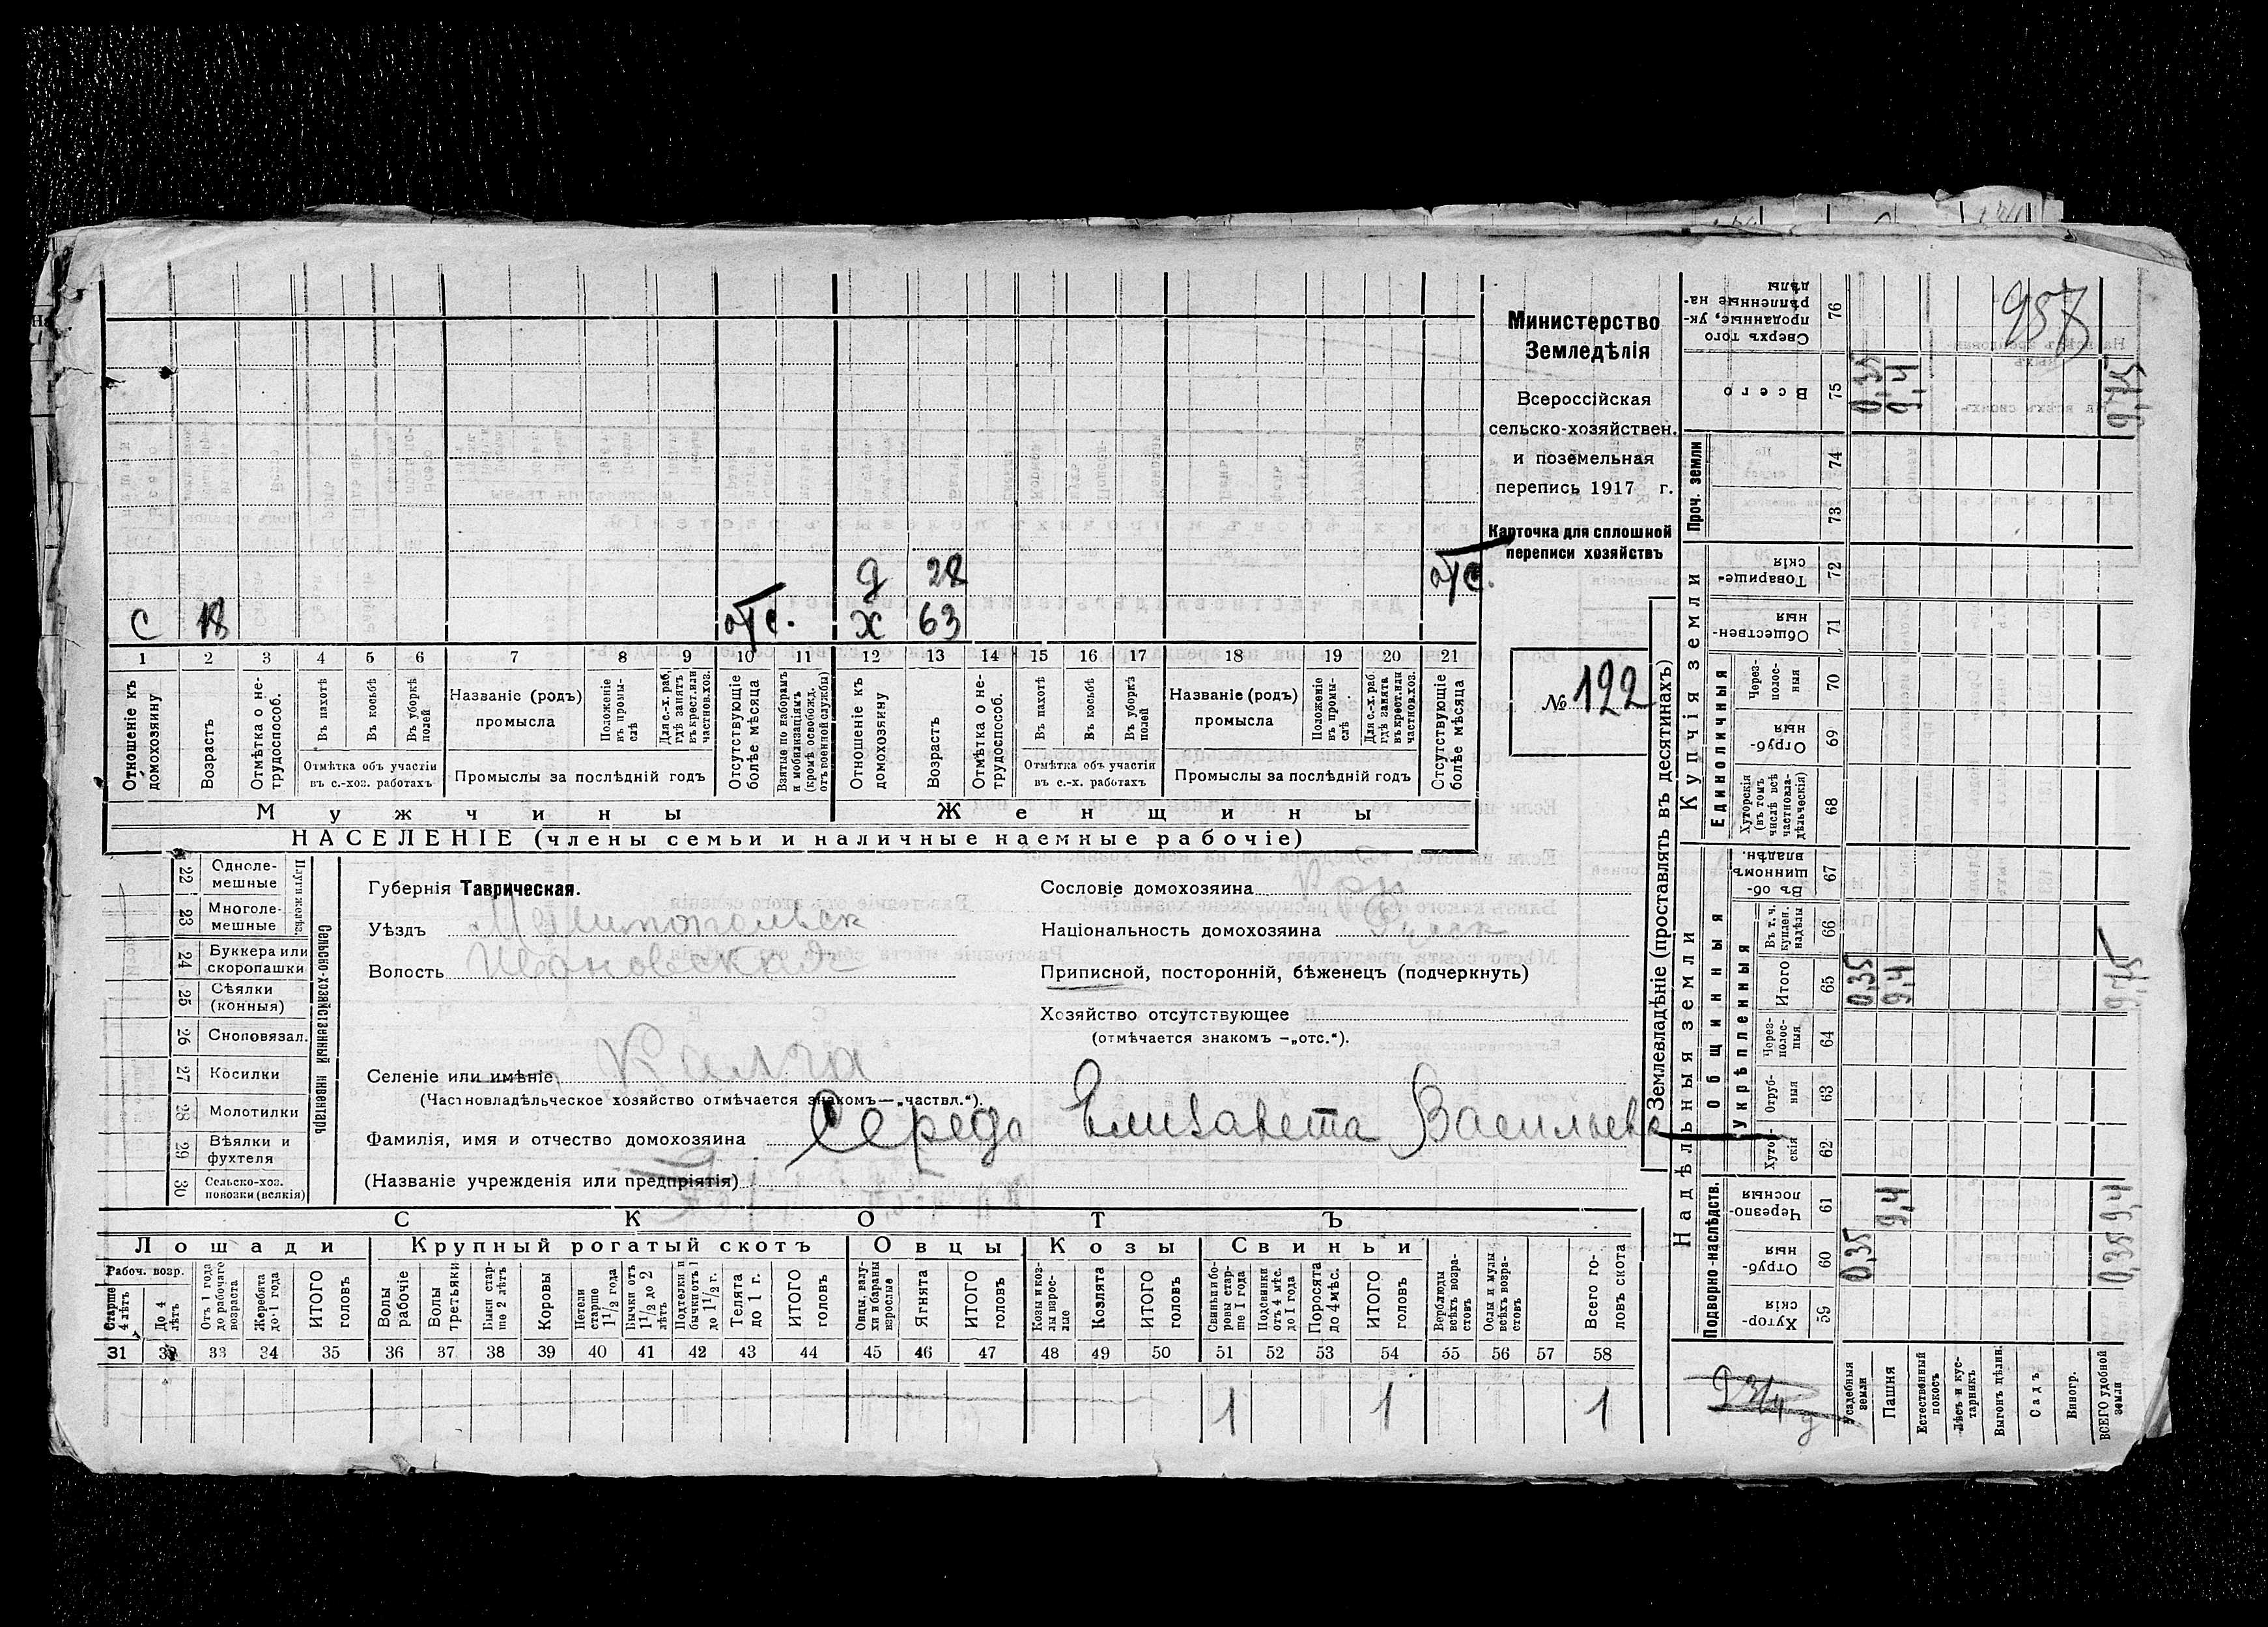 957
Министерство
Земледѣлія
Всероссійская
сельско-хозяйствен.
и поземельная
перепись 1917 г.
Карточка для сплошной
переписи хозяйствъ
№ 122
д 28 отс.
с 18 отс. х 63
1 2 3 4 5 6 7 8 9 10 11 12 13 14 15 16 17 18 19 20 21
Отношеніе къ домохозяину
Возрастъ
Отмѣтка о не-трудоспособ.
Въ пахотѣ
Въ косьбѣ
Въ уборкѣ полей
Отмѣтка объ участіи
въ с.-хоз. работахъ
Названіе (родъ)
промысла
Положеніе въ промы-слѣ
Для с.-х. раб. гдѣ занятъ въ крест. или частнов. хоз.
Промыслы за послѣдній годъ
Отсутствующіе болѣе мѣсяца
Взятые по наборамъ и мобилизаціямъ (кромѣ освобожд. отъ военной службы)
Отношеніе къ домохозяину
Возрастъ
Отмѣтка о не-трудоспособ.
Въ пахотѣ
Въ косьбѣ
Въ уборкѣ полей
Отмѣтка объ участіи
въ с.-х. работахъ
Названіе (родъ)
промысла
Положеніе въ промы-слѣ
Для с.-х. раб. гдѣ занята въ крест. или частнов. хоз.
Промыслы за послѣдній годъ
Отсутствующіе болѣе мѣсяца
Мужчины Женщины
НАСЕЛЕНІЕ (члены семьи и наличные наемные рабочіе)
Сельско-хозяйственный инвентарь
Плуги желѣз.
22 Одноле-мешные
23 Многоле-мешные
24 Буккера или скоропашки
25 Сѣялки (конныя)
26 Сноповязал.
27 Косилки
28 Молотилки
29 Вѣялки и фухтеля
30 Сельско-хоз. повозки (всякія)
Губернія Таврическая.
Уѣздъ Мелитопольск
Волость Ивановская
Селеніе или имѣніе
(Частновладѣльческое хозяйство отмѣчается знакомъ—„частвл.“).
Фамилія, имя и отчество домохозяина Середа Елизавета Васильев
(Названіе учрежденія или предпріятія)
Сословіе домохозяина
Національность домохозяина
Приписной, посторонній, бѣженецъ (подчеркнуть)
Хозяйство отсутствующее
(отмѣчается знакомъ —„отс.“).
СКОТЪ
Лошади Крупный рогатый скотъ Овцы Козы Свиньи
Рабоч. возр.
Старше 4 лѣтъ
До 4 лѣтъ
Отъ 1 года до рабочаго возраста
Жеребята до 1 года
ИТОГО головъ
Волы рабочіе
Волы третьяки
Быки стар-ше 2 лѣтъ
Коровы
Нетели старше 1 1/2 года
Бычки отъ 1 1/2 до 2 лѣтъ
Подтелки и бычки отъ 1 до 1 1/2 г.
Телята до 1 г.
ИТОГО головъ
Овцы, валу-хи и бараны взрослые
Ягнята
ИТОГО головъ
Козы и коз-лы взрос-лые
Козлята
ИТОГО головъ
Свиньи и бо-ровы стар-ше 1 года
Подсвинки отъ 4 мѣс. до 1 года
Поросята до 4 мѣс.
ИТОГО головъ
Верблюды всѣхъ возра-стовъ
Ослы и мулы всѣхъ возра-стовъ
Всего го-ловъ скота
31 32 33 34 35 36 37 38 39 40 41 42 43 44 45 46 47 48 49 50 51 52 53 54 55 56 57 58
1 1 1
Землевладѣніе (проставлять въ десятинахъ)
Надѣльныя земли
Купчія земли
Проч. земли
Подворно-наслѣдств.
Общинныя
Укрѣпленныя
Единоличныя
59 Хутор-скія
60 Отруб-ныя 0,35 0,35
61 Черезпо-лосныя 9,4 9,4
62 Хутор-скія
63 Отруб-ныя
64 Через-полос-ныя
65 Итого 0,35 9,4 9,75
66 Въ т. ч. куплен. надѣлы
67 Въ об-щинномъ владѣн.
68 Хуторскія (въ томъ числѣ всѣ частновла-дѣльческія)
69 Отруб-ныя
70 Через-полос-ныя
71 Обществен-ныя
72 Товарище-скія
73
74
75 Всего 0,35 9,4 9,75
76 Сверхъ того проданные, ук-рѣпленные на-дѣлы
Усадебныя земли
Пашня
Естественный покосъ
Лѣсъ и кус-тарникъ
Выгонъ цѣлин.
Садъ
Виногр.
ВСЕГО удобной земли